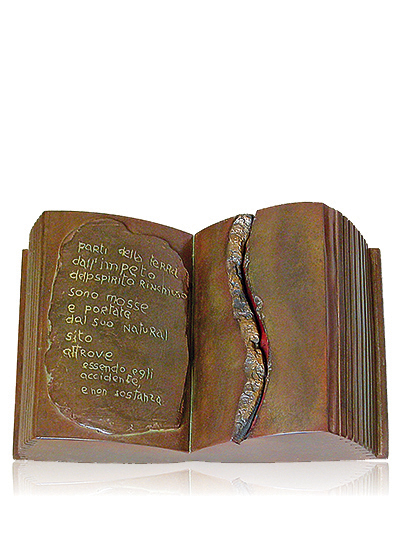 parti della terra
dall'impeto
dello spirito rinchiuso
sono mosse
e portate
dal suo natural
sito
altrove
essendo egli
accidente,
e non sostanza